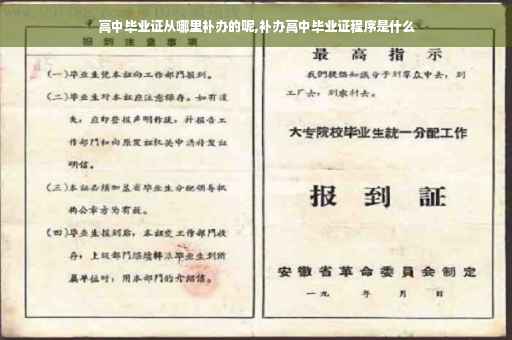 高中毕业证从哪里补办的呢,补办高中毕业证程序是什么
报到注意事项
(一)毕业生凭本证向工作部门报到。
(二)毕业生对本证应注意保存。如有遗
失,应即登报声明作废,并报告工
作部门和向原发证机关申请补发证
明信。
(三)本证必须加盖省毕业生分配领导机
构公章方为有效。
(四)毕业生报到后,本证交工作部门收
存;上级部门继续转派毕业生到所
属单位时,用本部门的介绍信。
最高指示
我们提倡知识分子到群众中去,到
工厂去,到农村去。
大专院校毕业生统一分配工作
报到证
安徽省革命委员会制定
一九 年 月 日